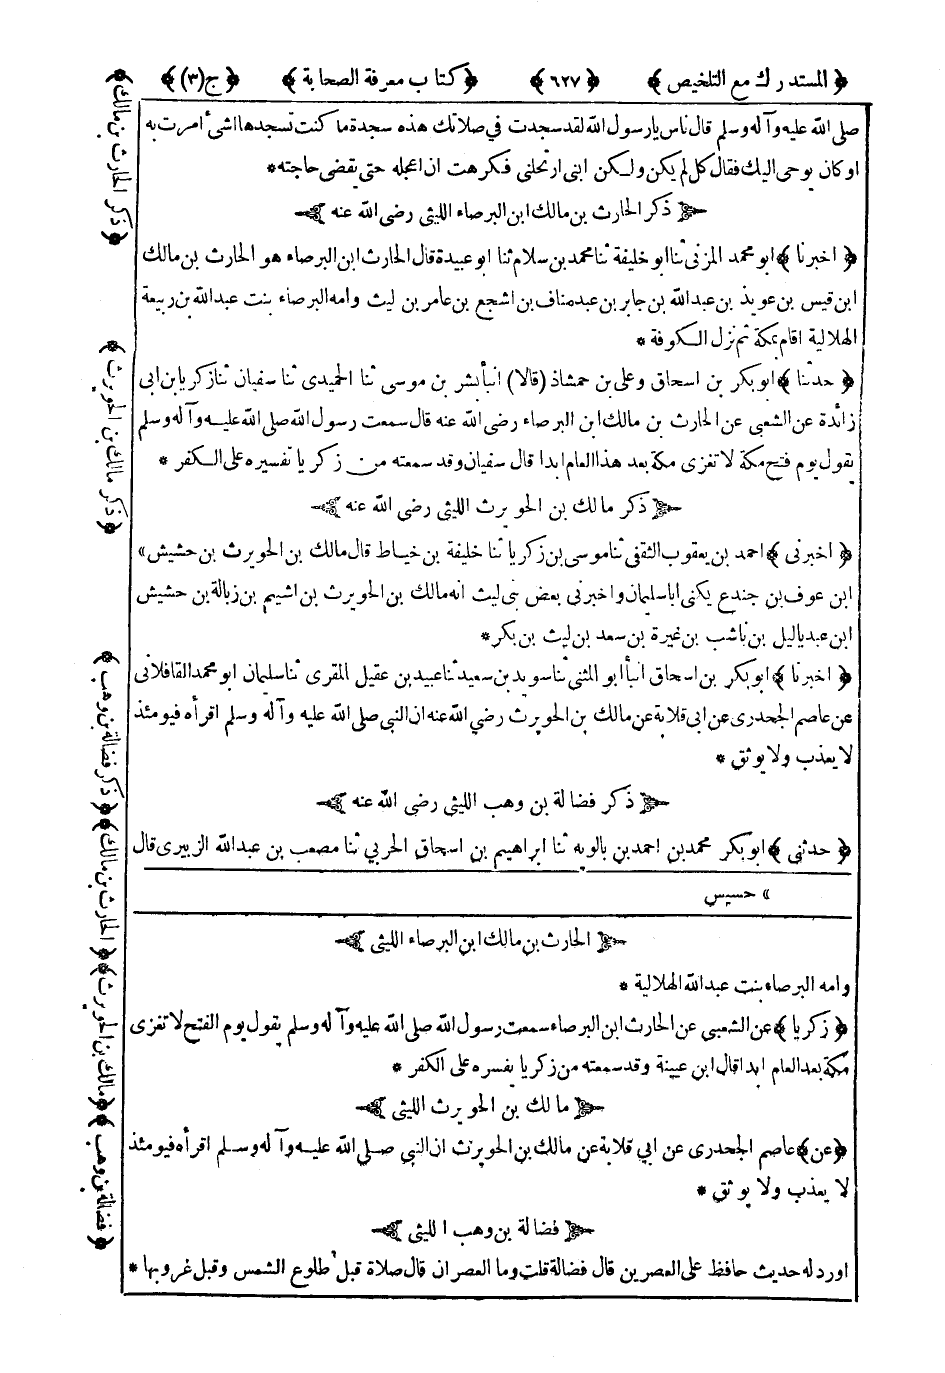 ﴿ المستدرك مع التلخيص ﴾ ﴿ ٦٢٧ ﴾ ﴿ كتاب معرفة الصحابة ﴾ ﴿ ج(٣) ﴾
صلى الله عليه وآله وسلم قال ناس يا رسول الله لقد سجدت في صلاتك هذه سجدة ما كنت تسجدها اشئ أمرت به
او كان يوحى اليك فقال كل لم يكن ولكن ابنى ارتحلنى فكرهت ان اعجله حتى يقضى حاجته *
ذكر الحارث بن مالك ابن البرصاء الليثى رضى الله عنه
﴿ اخبرنا ﴾ ابو محمد المزنى ثنا ابو خليفة ثنا محمد بن سلام ثنا ابو عبيدة قال الحارث ابن البرصاء هو الحارث بن مالك
ابن قيس بن عويذ بن عبد الله بن جابر بن عبد مناف بن اشجع بن عامر بن ليث وامه البرصاء بنت عبد الله بن ربيعة
الهلالية اقام بمكة ثم نزل الكوفة *
﴿ حدثنا ﴾ ابو بكر بن اسحاق وعلى بن حمشاذ (قالا) انبأ بشر بن موسى ثنا الحميدى ثنا سفيان ثنا زكريا بن ابى
زائدة عن الشعبى عن الحارث بن مالك ابن البرصاء رضى الله عنه قال سمعت رسول الله صلى الله عليه وآله وسلم
يقول يوم فتح مكة لا تغزى مكة بعد هذا العام ابدا قال سفيان وقد سمعته من زكريا تفسيره على الكفر *
ذكر مالك بن الحويرث الليثى رضى الله عنه
﴿ اخبرنى ﴾ احمد بن يعقوب الثقفى ثنا موسى بن زكريا ثنا خليفة بن خياط قال مالك بن الحويرث بن حشيش »
ابن عوف بن جندع يكنى ابا سليمان واخبرنى بعض بنى ليث انه مالك بن الحويرث بن اشيم بن زبالة بن حشيش
ابن عبد ياليل بن ناشب بن غيرة بن سعد بن ليث بن بكر *
﴿ اخبرنا ﴾ ابو بكر بن اسحاق انبأ ابو المثنى ثنا سويد بن سعيد ثنا عبيد بن عقيل المقرى ثنا سليمان ابو محمد القافلانى
عن عاصم الجحدرى عن ابى قلابة عن مالك بن الحويرث رضى الله عنه ان النبى صلى الله عليه وآله وسلم اقرأه فيومئذ
لا يعذب ولا يوثق *
ذكر فضالة بن وهب الليثى رضى الله عنه
﴿ حدثنى ﴾ ابو بكر محمد بن احمد بن بالويه ثنا ابراهيم بن اسحاق الحربى ثنا مصعب بن عبد الله الزبيرى قال
» حسيس
الحارث بن مالك ابن البرصاء الليثى
وامه البرصاء بنت عبد الله الهلالية *
﴿ زكريا ﴾ عن الشعبى عن الحارث ابن البرصاء سمعت رسول الله صلى الله عليه وآله وسلم يقول يوم الفتح لا تغزى
مكة بعد العام ابدا قال ابن عيينة وقد سمعته من زكريا يفسره على الكفر *
مالك بن الحويرث الليثى
﴿ عن ﴾ عاصم الجحدرى عن ابى قلابة عن مالك بن الحويرث ان النبى صلى الله عليه وآله وسلم اقرأه فيومئذ
لا يعذب ولا يوثق *
فضالة بن وهب الليثى
اورد له حديث حافظ على العصرين قال فضالة قلت وما العصران قال صلاة قبل طلوع الشمس وقبل غروبها *
﴿ ذكر الحارث بن مالك ﴾
﴿ ذكر مالك بن الحويرث ﴾
﴿ ذكر فضالة بن وهب ﴾
﴿ الحارث بن مالك ﴾
﴿ مالك بن الحويرث ﴾
﴿ فضالة بن وهب ﴾